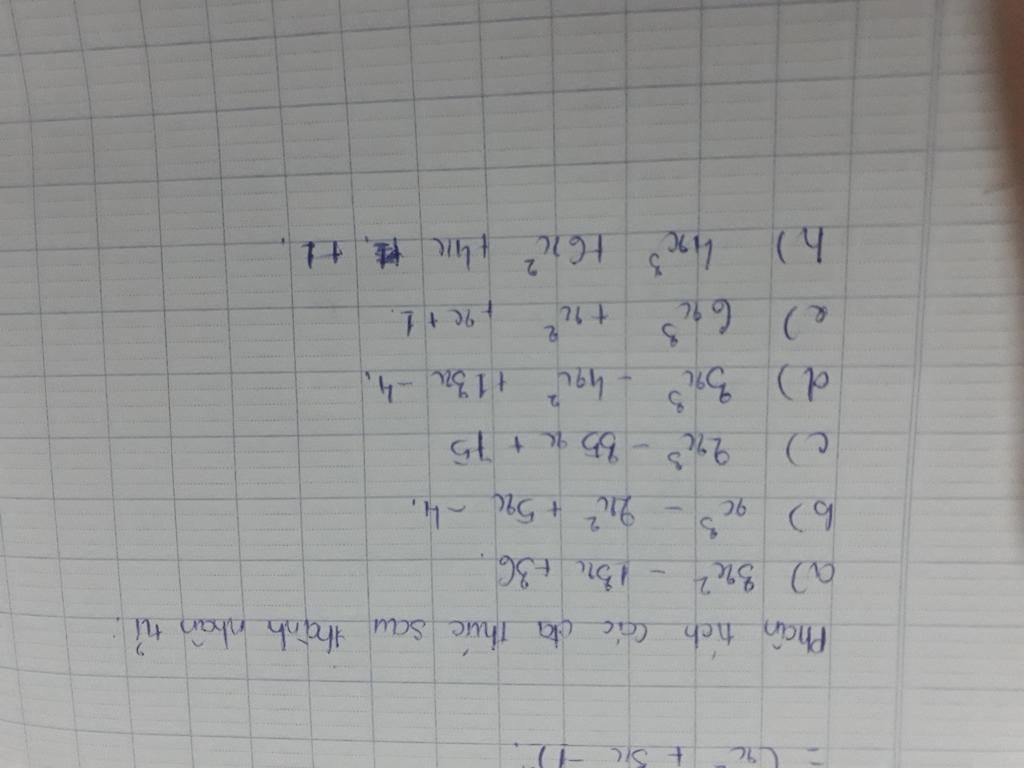 = (x² + 5x - 1)².
Phân tích các đa thức sau thành nhân tử.
a) 3x² - 13x + 36.
b) x³ - 2x² + 5x - 4.
c) 2x³ - 35x + 75
d) 3x³ - 4x² + 13x - 4.
e) 6x³ + x² + x + 1.
h) 4x³ + 6x² + 4x + 1.